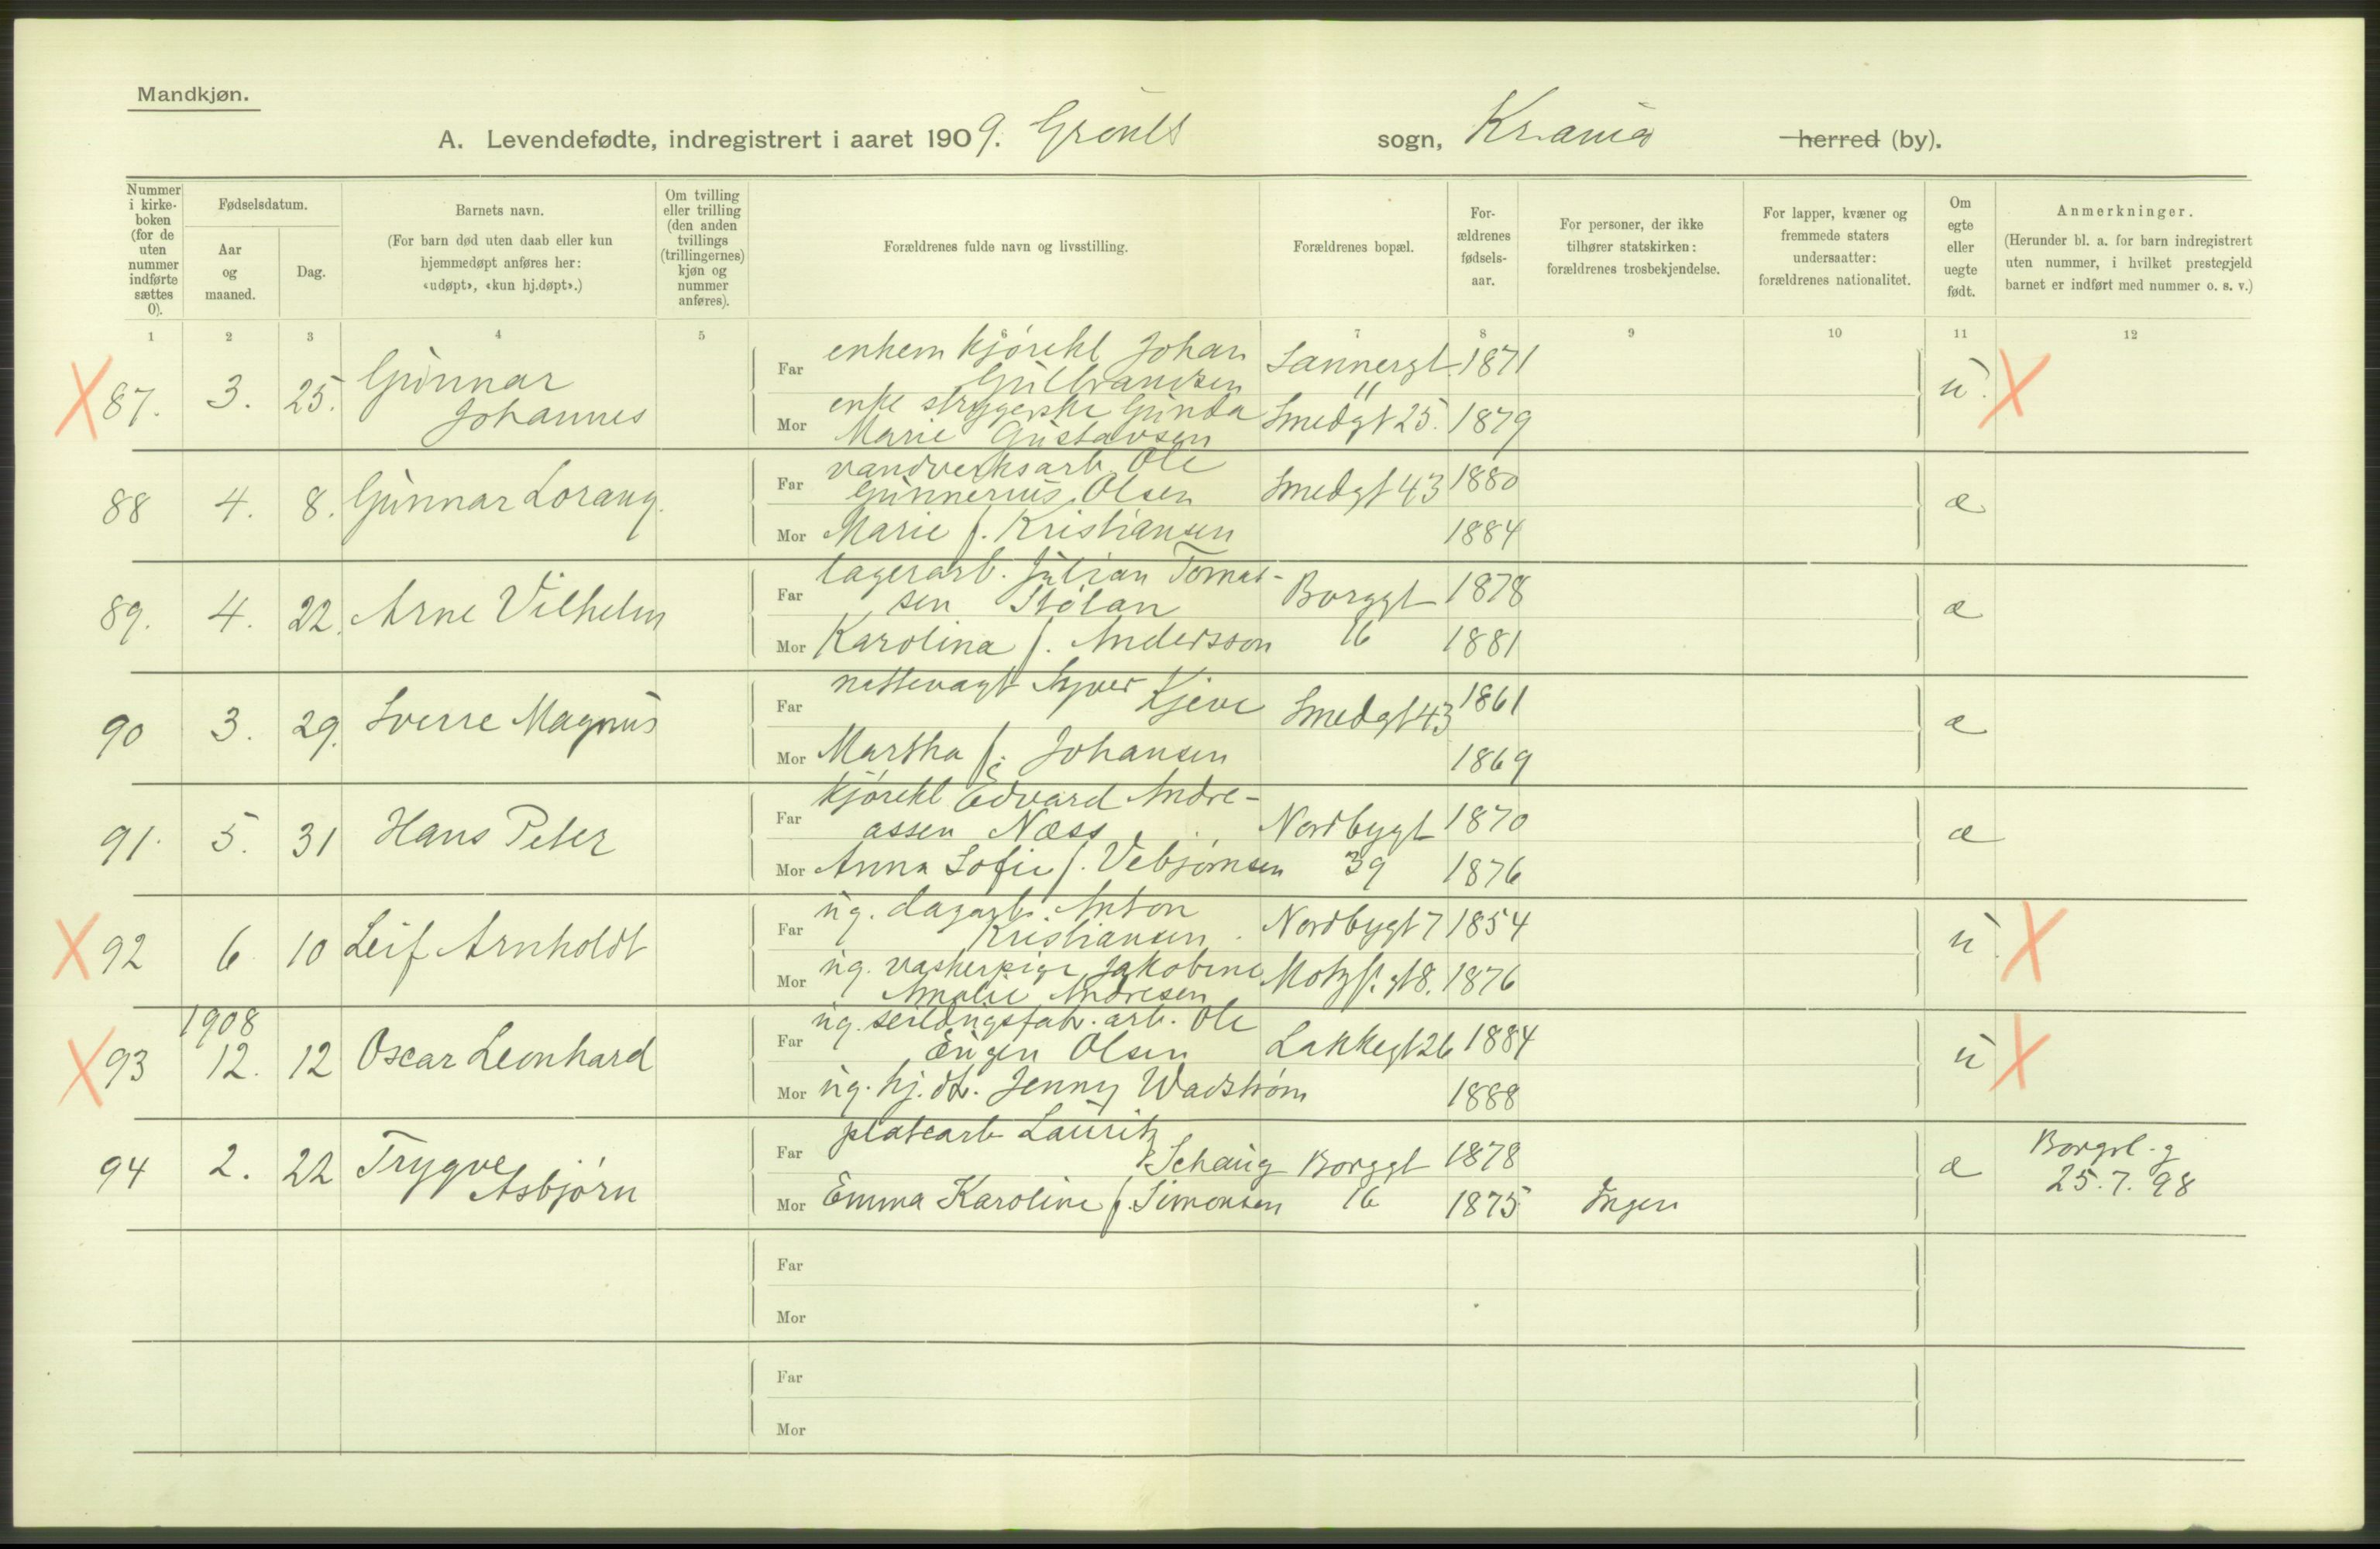 Mandkjøn.
A. Levendefødte, indregistrert i aaret 1909. Grønl. sogn, Kr.ania herred (by).
Nummer i kirke-boken (for de uten nummer indførte sættes 0).
Fødselsdatum.
Aar og maaned.
Dag.
Barnets navn.
(For barn død uten daab eller kun hjemmedøpt anføres her: «udøpt», «kun hj.døpt».)
Om tvilling eller trilling (den anden tvillings (trillingernes) kjøn og nummer anføres).
Forældrenes fulde navn og livsstilling.
Forældrenes bopæl.
For-ældrenes fødsels-aar.
For personer, der ikke tilhører statskirken: forældrenes trosbekjendelse.
For lapper, kvæner og fremmede staters undersaatter: forældrenes nationalitet.
Om egte eller uegte født.
Anmerkninger.
(Herunder bl. a. for barn indregistrert uten nummer, i hvilket prestegjeld barnet er indført med nummer o. s. v.)
1 2 3 4 5 6 7 8 9 10 11 12
X 87. 3. 25. Gunnar Johannes
Far enkem kjørekl Johan Gulbrandsen Sannergt. 11 1871
Mor enke strygerske Gunda Marie Gustavsen Smedgt 25. 1879
u. X
88 4. 8. Gunnar Lorang.
Far vandverksarb. Ole Gunnerius Olsen Smedgt 43 1880
Mor Marie f. Kristiansen 1884
æ
89. 4. 22. Arne Vilhelm
Far lagerarb. Julian Tomas-sen Stølan Borggt 16 1878
Mor Karolina f. Andersson 1881
æ
90 3. 29. Sverre Magnus
Far nattevagt Syver Kjeve Smedgt 43 1861
Mor Martha f. Johansen 1869
æ
91. 5. 31 Hans Peter
Far kjørekl Edvard Andre-assen Næss Nordbygt 39 1870
Mor Anna Sofie f. Vebjørnsen 1876
æ
X 92 6. 10 Leif Arnholdt
Far ug. dagarb. Anton Kristiansen. Nordbygt 7 1854
Mor ug. vaskerpige Jakobine Amalie Andresen Motzf. gt 8. 1876
u. X
X 93 1908 12. 12 Oscar Leonhard
Far ug. seildugsfabr. arb. Ole Eugen Olsen Lakkegt 26 1884
Mor ug. hj. dtr. Jenny Wadstrøm 1888
u X
94 2. 22 Trygve Asbjørn
Far platearb Lauritz Schaug Borggt 16 1878
Mor Emma Karoline f. Simonsen 1875 Ingen
æ 25.7.98
Far
Mor
Far
Mor